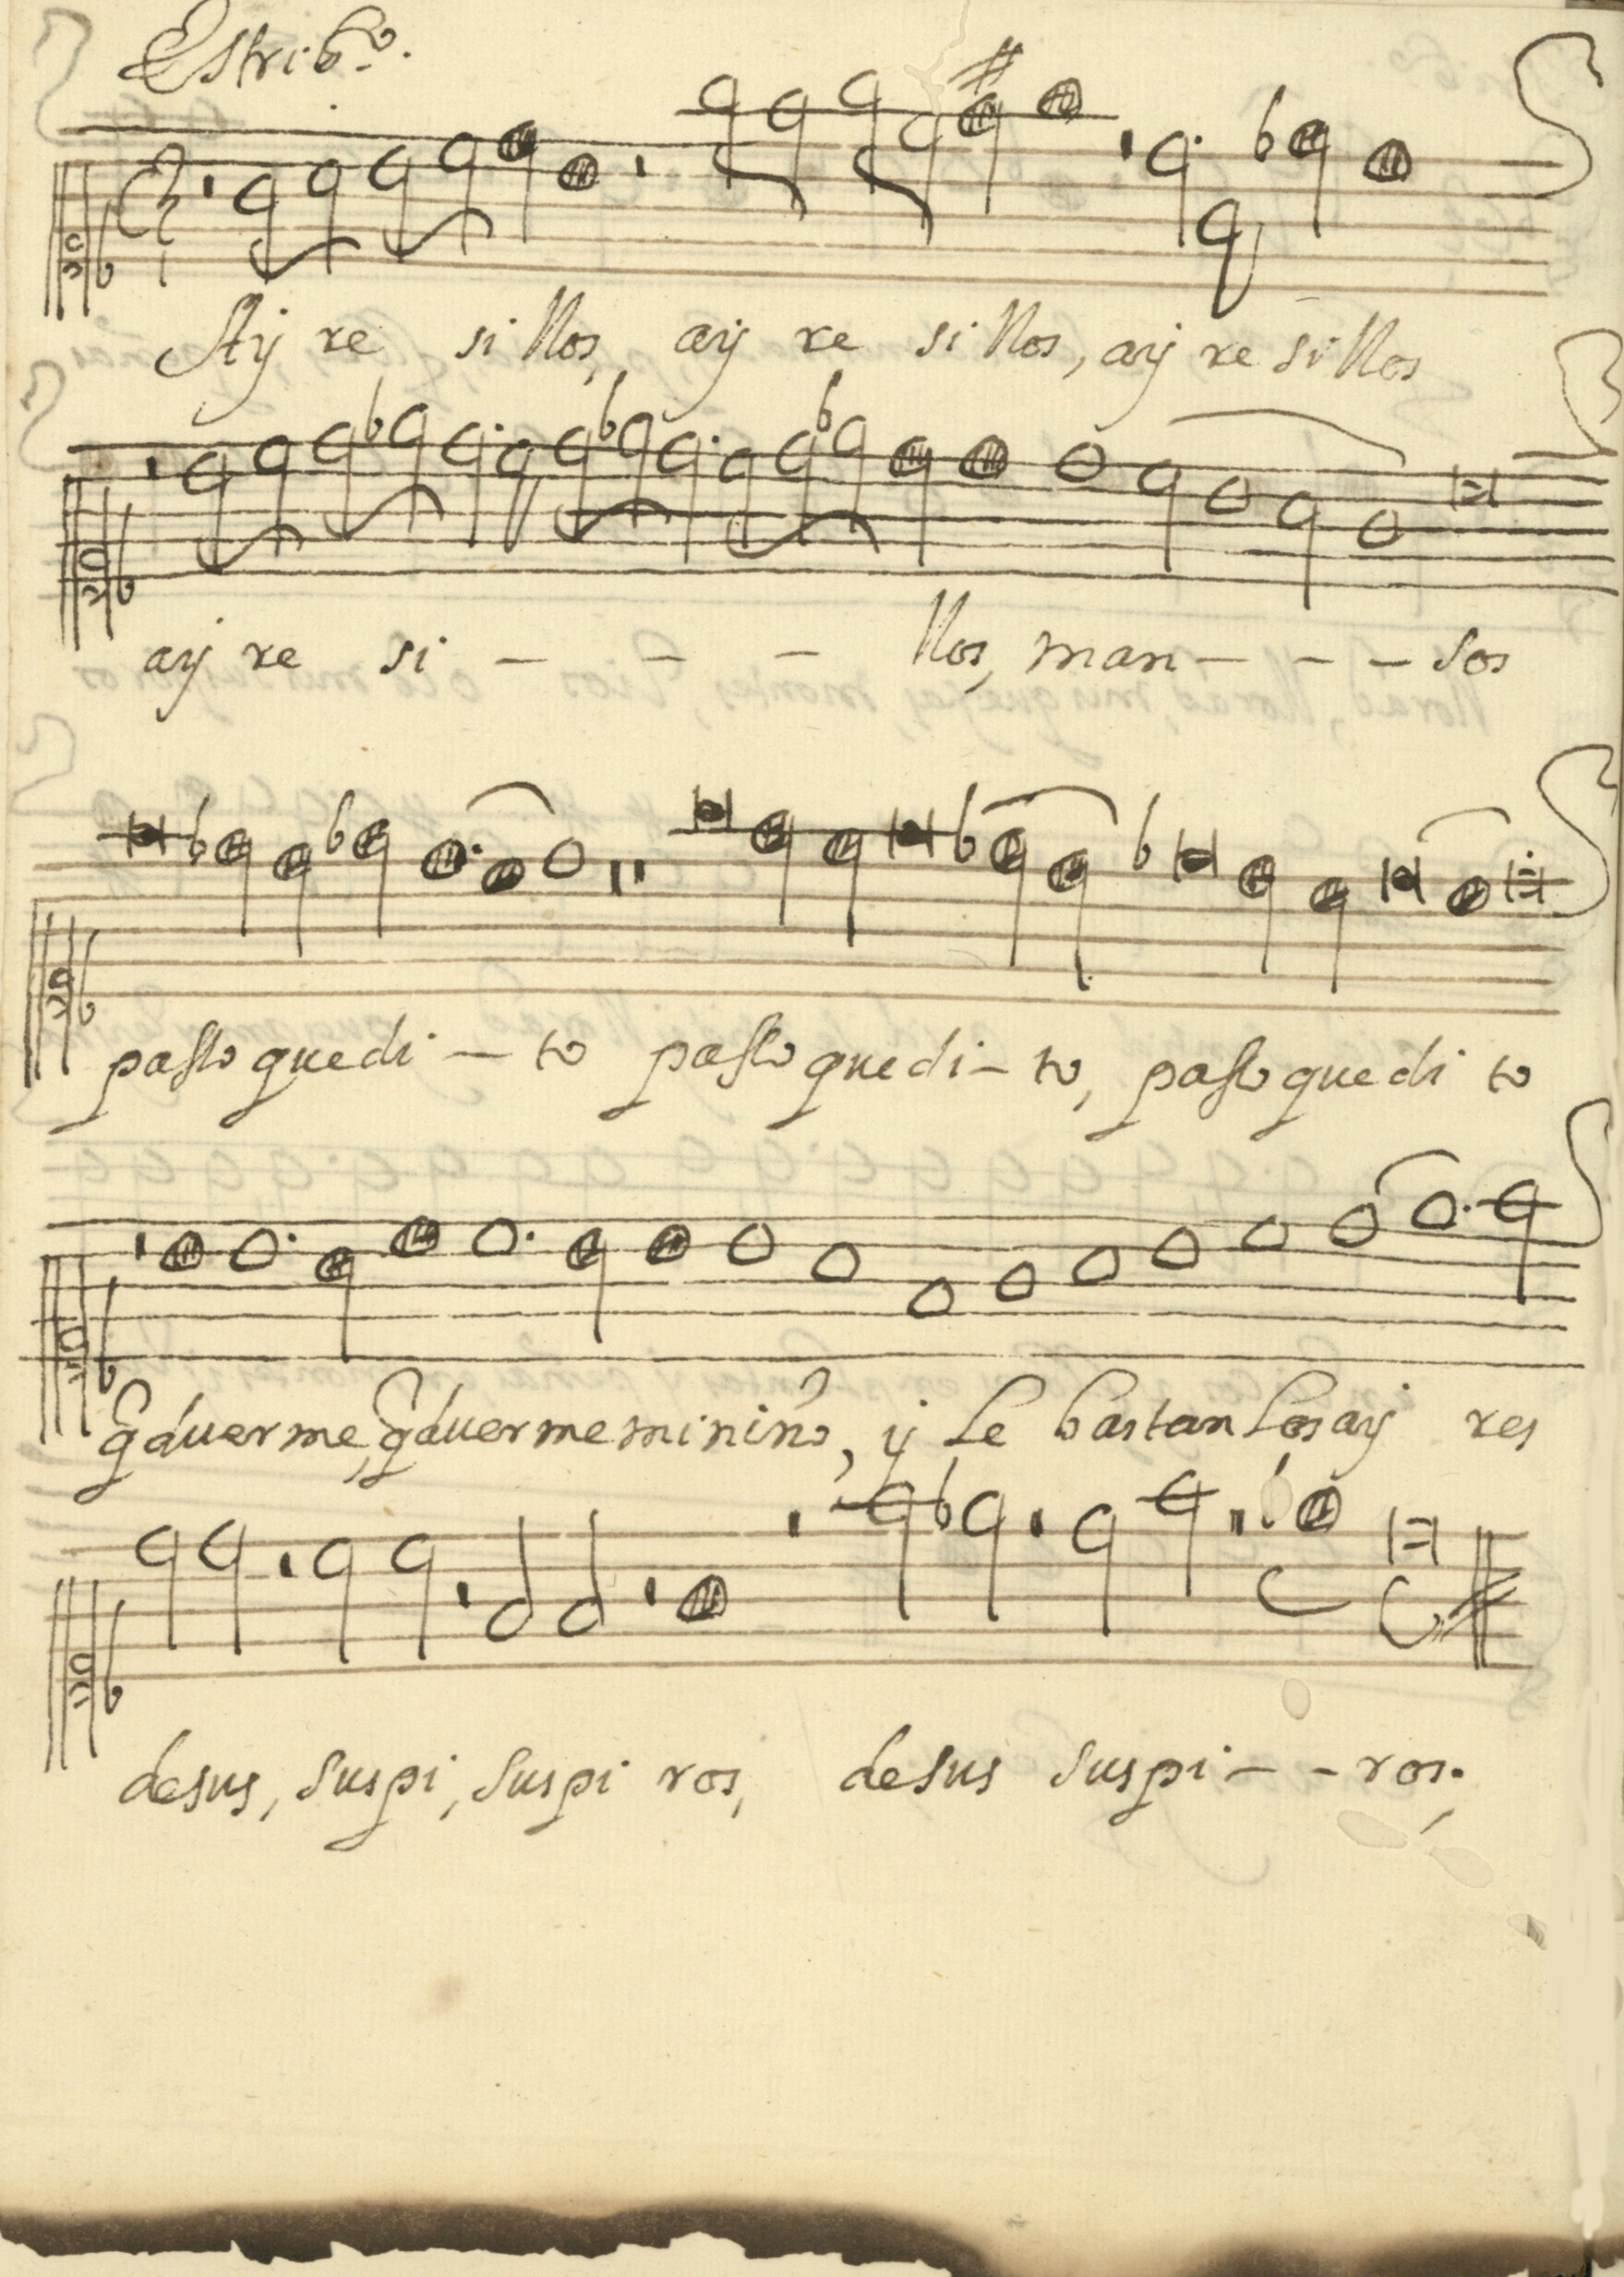 Estribo.
Ay re si llos, ay re si llos, ay re si llos
ay re si - - - llos, man - - - sos
passo quedi - to passo quedi - to, passo quedi to
q̃ duerme, q̃ duerme mi niño, y le bastan los ay res
desus, suspi, suspi ros, desus suspi - - ros.